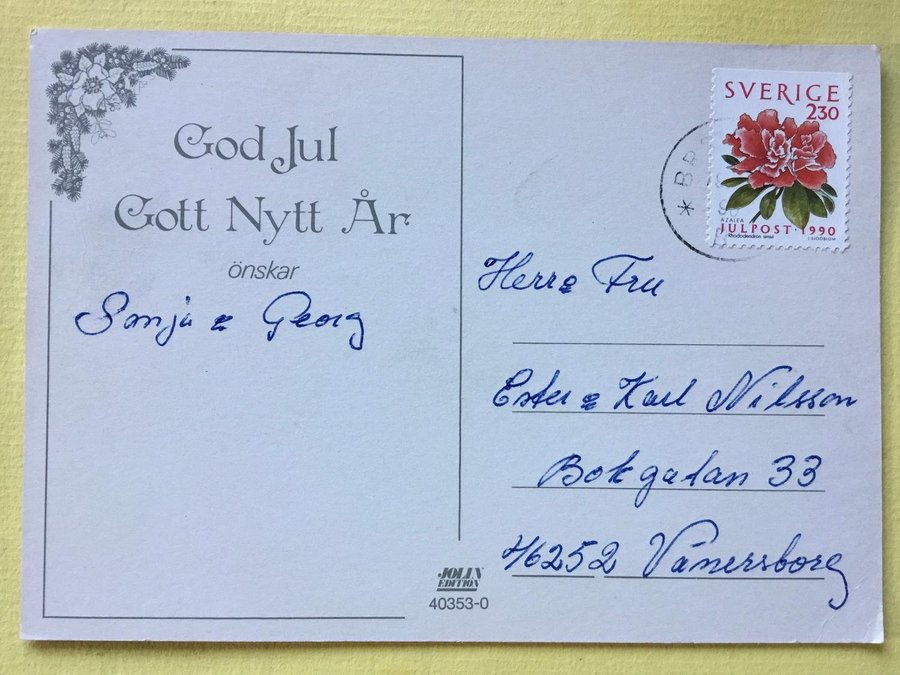 God Jul
Gott Nytt År
önskar
Sonja & Georg
SVERIGE
230
AZALEA
Rhododendron simsii
JULPOST · 1990
I SJÖÖBLOM
Herr & Fru
Ester & Karl Nilsson
Bokgatan 33
46252 Vänersborg
JOLIN
EDITION
40353-0